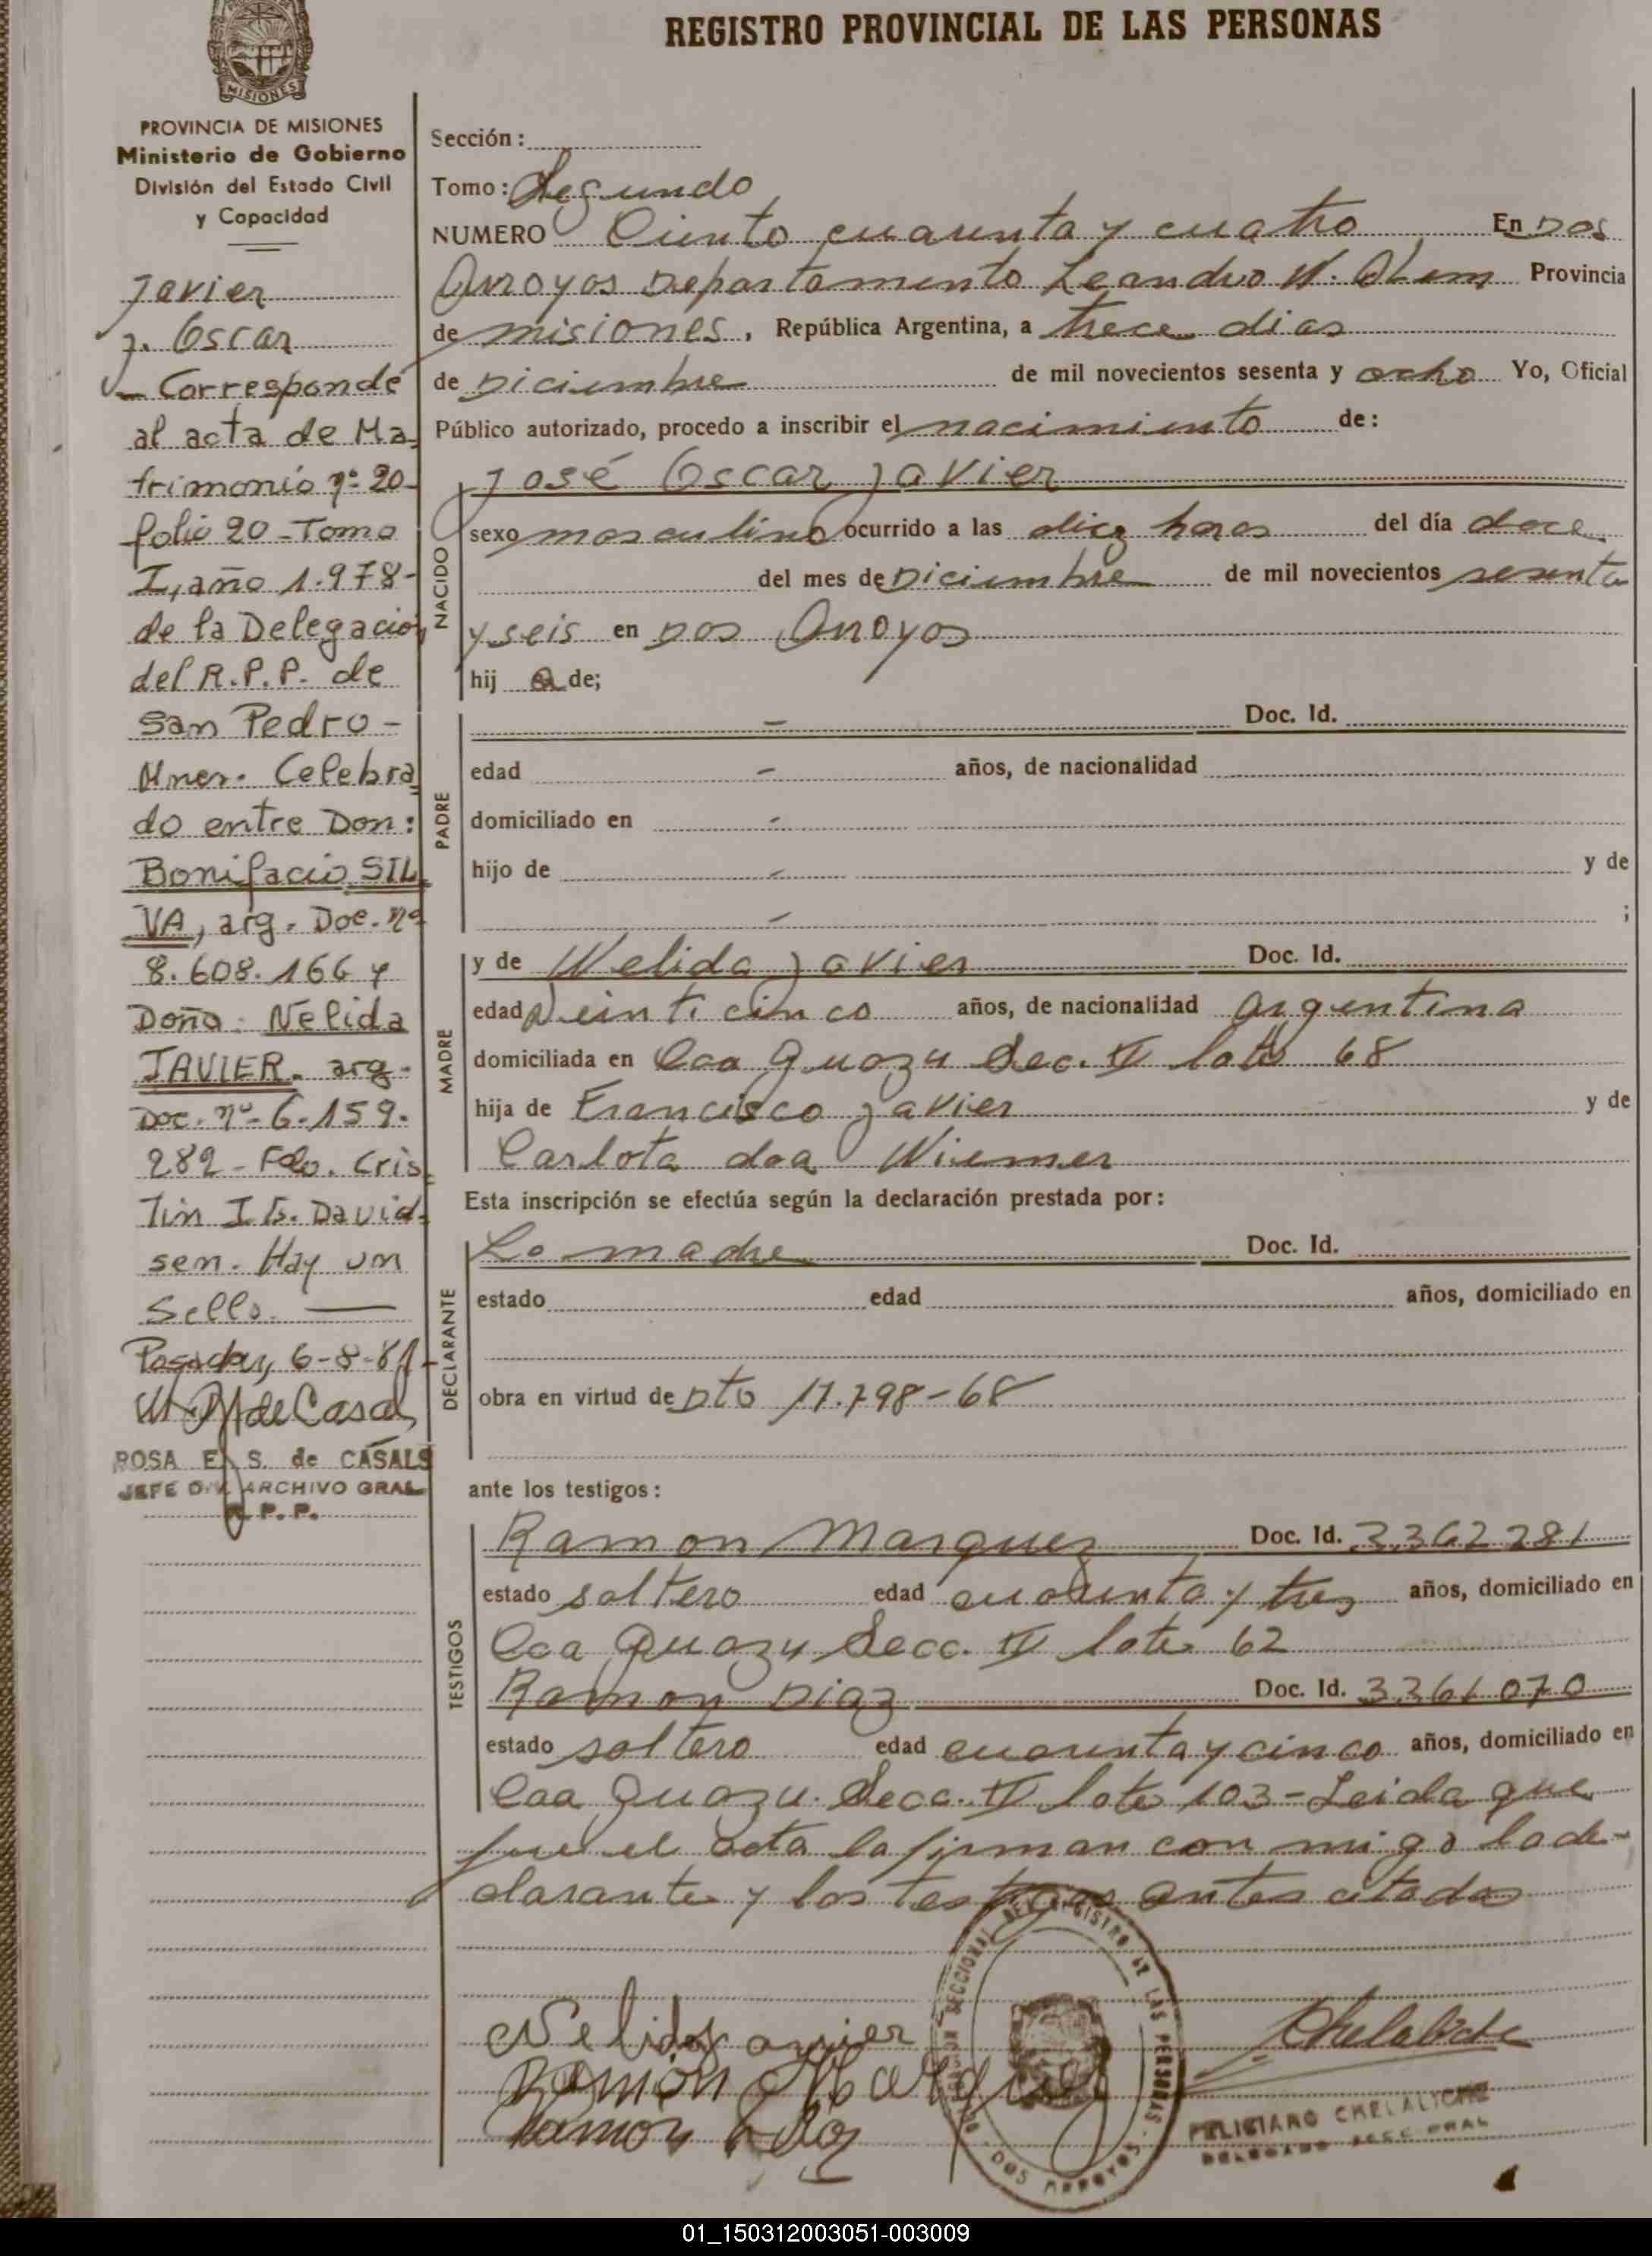 REGISTRO PROVINCIAL DE LAS PERSONAS
MISIONES
PROVINCIA DE MISIONES
Ministerio de Gobierno
División del Estado Civil
y Capacidad
Javier
J. Oscar
- Corresponde
al acta de Ma-
trimonio nº 20-
folio 20 - Tomo
I, año 1.978-
de la Delegación
del R.P.P. de
San Pedro -
Mnes. Celebra
do entre Don:
Bonifacio SIL
VA, arg. Doc. nº
8.608.166 y
Doña: Nélida
JAVIER. arg.
Doc. nº 6.159.
282 - Fdo. Cris
tin I. E. David-
sen. Hay un
Sello. —
Posadas, 6-8-81-
ROSA E. S. de CASALS
JEFE DIV. ARCHIVO GRAL
R. P. P.
Sección :
Tomo : Segundo
NUMERO Ciento cuarenta y cuatro En Dos
Arroyos Departamento Leandro N. Alem Provincia
de misiones, República Argentina, a trece dias
de Diciembre de mil novecientos sesenta y ocho Yo, Oficial
Público autorizado, procedo a inscribir el nacimiento de:
José Oscar Javier
NACIDO
sexo masculino ocurrido a las diez horas del día doce
del mes de Diciembre de mil novecientos sesenta
y seis en Dos Arroyos
hij o de;
PADRE
- Doc. Id.
edad - años, de nacionalidad
domiciliado en -
hijo de - y de
- ;
MADRE
y de Nelida Javier Doc. Id.
edad Veinti cinco años, de nacionalidad argentina
domiciliada en Caa Guazu Sec. IV lote 68
hija de Francisco Javier y de
Carlota doa Wiemer
Esta inscripción se efectúa según la declaración prestada por :
DECLARANTE
La madre Doc. Id.
estado edad años, domiciliado en
obra en virtud de Dto 11.798-68
ante los testigos :
TESTIGOS
Ramon Marquez Doc. Id. 3.362.281
estado soltero edad cuarenta y tres años, domiciliado en
Caa Guazu Secc. IV lote 62
Ramon Diaz Doc. Id. 3.361.070
estado soltero edad cuarenta y cinco años, domiciliado en
Caa Guazu. Secc. IV lote 103 - Leida que
fue el acta la firman con migo la de-
clarante y los testigos antes citados
Nelida Javier
Ramón Marquez
Ramon Diaz
SECCIONAL DEL REGISTRO DE LAS PERSONAS - DOS ARROYOS
Chelaliche
FELICIANO CHELALICHE
01_150312003051-003009